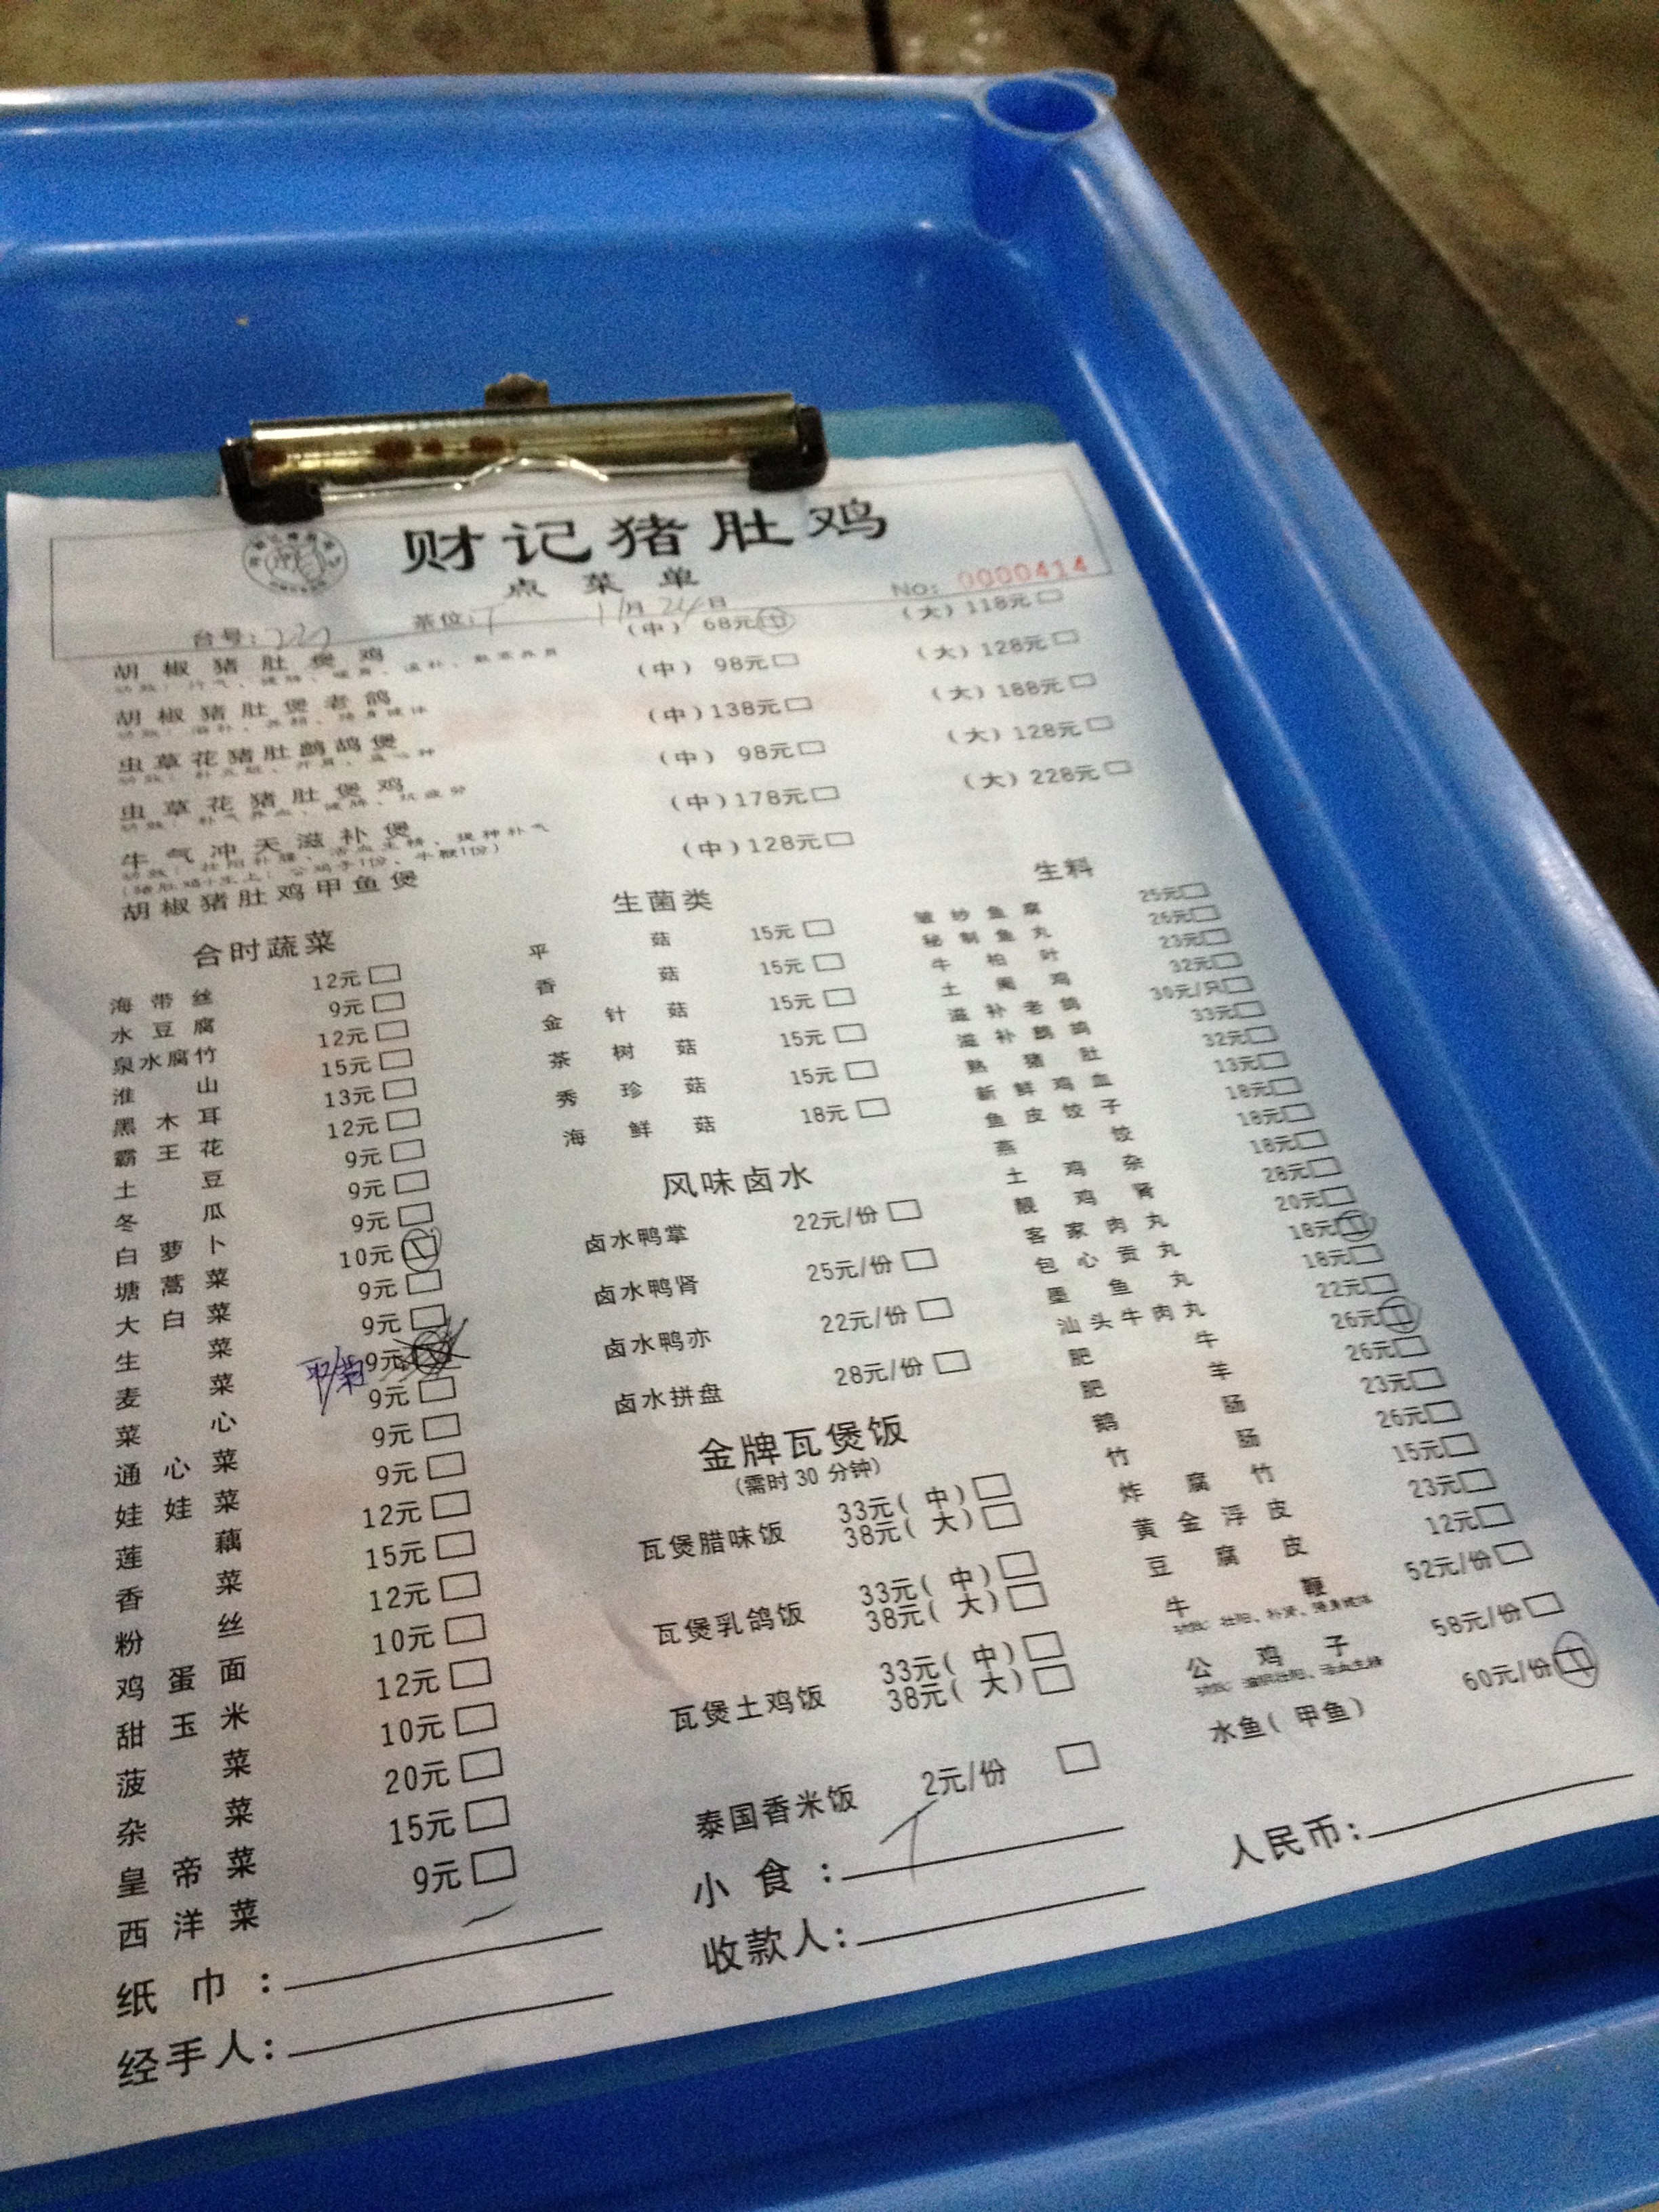 财记猪肚鸡
点菜单
No: 0000414
台号: 茶位: 11月24日
胡椒猪肚煲鸡 (中) 68元 (大) 118元
胡椒猪肚煲老鸽 (中) 98元 (大) 128元
虫草花猪肚鹧鸪煲 (中) 138元 (大) 188元
虫草花猪肚煲鸡 (中) 98元 (大) 128元
牛气冲天滋补煲 (中) 178元 (大) 228元
(猪肚鸡+生上: 公鸡子1份、牛鞭1份)
胡椒猪肚鸡甲鱼煲 (中) 128元
合时蔬菜
海带丝 12元
水豆腐 9元
泉水腐竹 12元
淮山 15元
黑木耳 13元
霸王花 12元
土豆 9元
冬瓜 9元
白萝卜 9元
塘蒿菜 10元
大白菜 9元
生菜 9元
麦菜 9元
菜心 9元
通心菜 9元
娃娃菜 9元
莲藕 12元
香菜 15元
粉丝 12元
鸡蛋面 10元
甜玉米 12元
菠菜 10元
杂菜 20元
皇帝菜 15元
西洋菜 9元
纸巾:
经手人:
生菌类
平菇 15元
香菇 15元
金针菇 15元
茶树菇 15元
秀珍菇 15元
海鲜菇 18元
风味卤水
卤水鸭掌 22元/份
卤水鸭肾 25元/份
卤水鸭亦 22元/份
卤水拼盘 28元/份
金牌瓦煲饭
(需时 30 分钟)
瓦煲腊味饭 33元( 中)
38元( 大)
瓦煲乳鸽饭 33元( 中)
38元( 大)
瓦煲土鸡饭 33元( 中)
38元( 大)
泰国香米饭 2元/份
小食:
收款人:
生料
皱纱鱼腐 25元
秘制鱼丸 26元
牛柏叶 23元
土阉鸡 32元
滋补老鸽 30元/只
滋补鹧鸪 33元
熟猪肚 32元
新鲜鸡血 13元
鱼皮饺子 18元
燕饺 18元
土鸡杂 18元
靓鸡肾 28元
客家肉丸 20元
包心贡丸 18元
墨鱼丸 18元
汕头牛肉丸 22元
肥牛 26元
肥羊 26元
鹅肠 23元
竹肠 26元
炸腐竹 15元
黄金浮皮 23元
豆腐皮 12元
牛鞭 52元/份
公鸡子 58元/份
水鱼( 甲鱼) 60元/份
人民币: